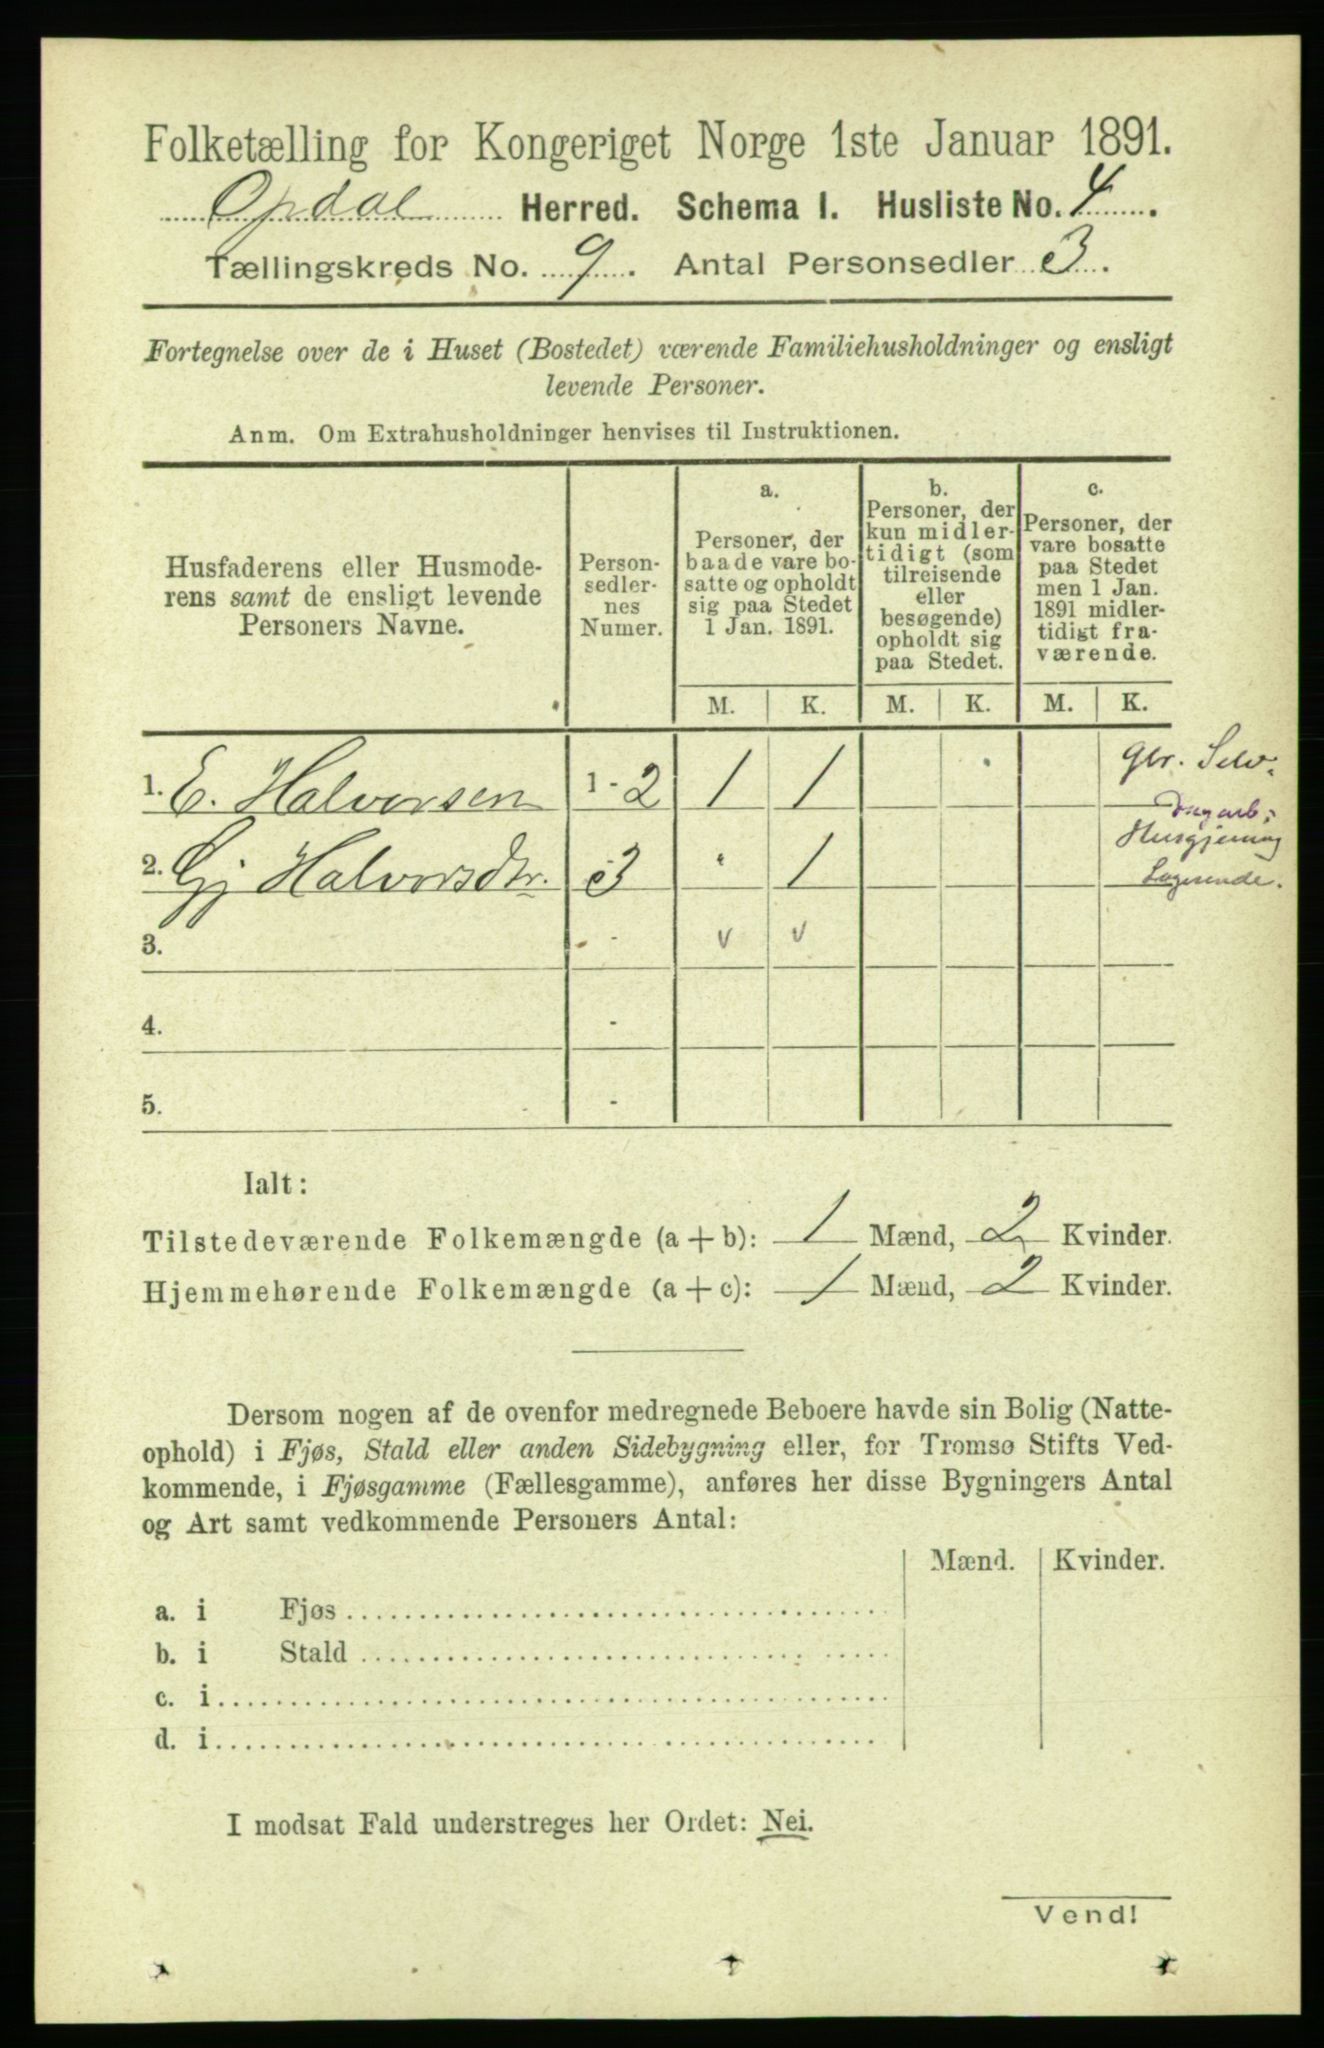 Folketælling for Kongeriget Norge 1ste Januar 1891.
Opdal Herred. Schema I. Husliste No. 4.
Tællingskreds No. 9. Antal Personsedler 3.
Fortegnelse over de i Huset (Bostedet) værende Familiehusholdninger og ensligt
levende Personer.
Anm. Om Extrahusholdninger henvises til Instruktionen.
Husfaderens eller Husmode-
rens samt de ensligt levende
Personers Navne.
Person-
sedler-
nes
Numer.
a.
Personer, der
baade vare bo-
satte og opholdt
sig paa Stedet
1 Jan. 1891.
b.
Personer, der
kun midler-
tidigt (som
tilreisende
eller
besøgende)
opholdt sig
paa Stedet.
c.
Personer, der
vare bosatte
paa Stedet
men 1 Jan.
1891 midler-
tidigt fra-
værende.
M. K. M. K. M. K.
1. E. Halvorsen 1 - 2 1 1
Gbr. Selv.
Dagarb.
Husgjerning
2. Gj Halvorsdtr. 3 1
Logerende.
3. - v v
4. -
5. -
Ialt:
Tilstedeværende Folkemængde (a + b): 1 Mænd, 2 Kvinder.
Hjemmehørende Folkemængde (a + c): 1 Mænd, 2 Kvinder.
Dersom nogen af de ovenfor medregnede Beboere havde sin Bolig (Natte-
ophold) i Fjøs, Stald eller anden Sidebygning eller, for Tromsø Stifts Ved-
kommende, i Fjøsgamme (Fællesgamme), anføres her disse Bygningers Antal
og Art samt vedkommende Personers Antal:
Mænd. Kvinder.
a. i Fjøs
b. i Stald
c. i
d. i
I modsat Fald understreges her Ordet: Nei.
Vend!